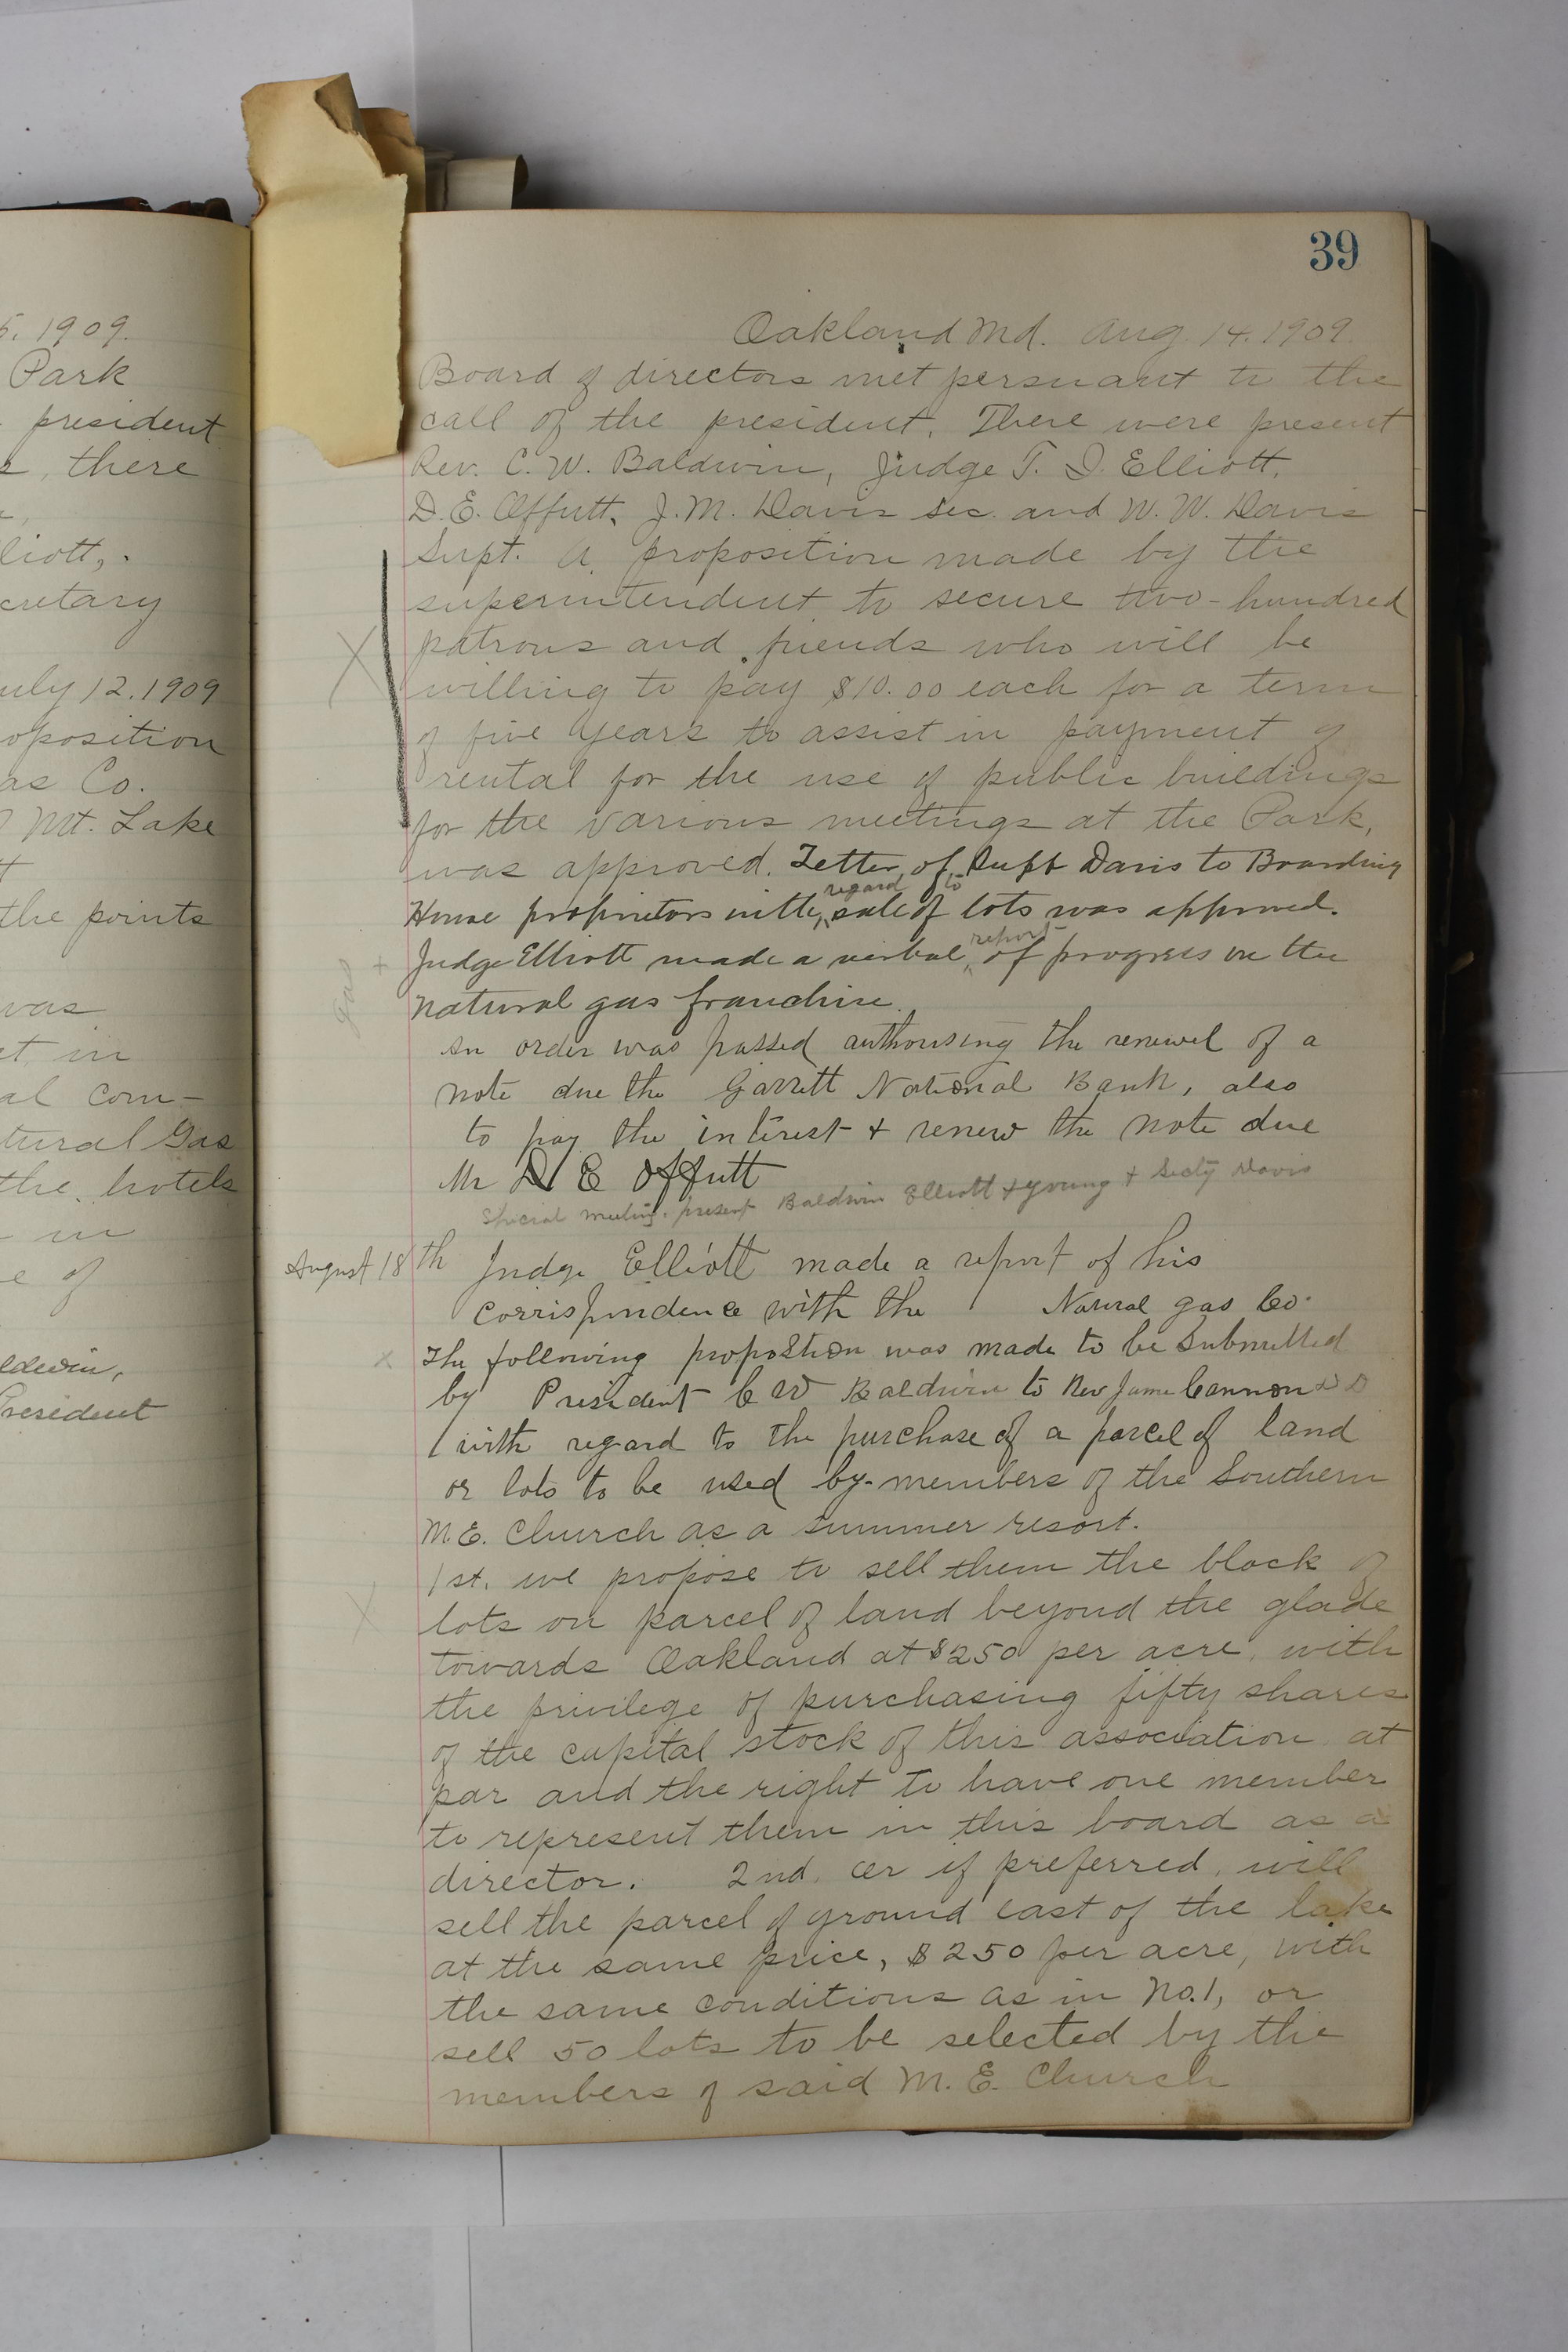 5. 1909.
Park
president
, there
liott,
cretary
uly 12. 1909
oposition
as Co.
Mt. Lake
the points
was
et, in
al com-
tural Gas
the hotels
in
e of
aldwin,
President
39
Oakland Md. Aug. 14. 1909.
Board of directors met persuant to the
call of the president. There were present
Rev. C. W. Baldwin, Judge T. I. Elliott,
D. E. Offutt, J. M. Davis sec. and W. W. Davis
Supt. A proposition made by the
superintendent to secure two-hundred
X patrons and friends who will be
willing to pay $10.00 each for a term
of five years to assist in payment of
rental for the use of public buildings
for the various meetings at the Park,
was approved. Letter of Supt Davis to Boarding
House proprietors with regard to sale of lots was approved.
gas + Judge Elliott made a verbal report of progress on the
natural gas franchise.
An order was passed authorising the renewel of a
note due the Garrett National Bank, also
to pay the interest + renew the note due
Mr D E Offutt
Special meeting. present Baldwin Elliott + Young + Secty Davis
August 18th Judge Elliott made a report of his
Corrispondence with the Natural gas Co.
x The following propostion was made to be Submitted
by President C W Baldwin to Rev Jame Cannon D D
with regard to the purchase of a parcel of land
or lots to be used by members of the Southern
M.E. Church as a summer resort.
X 1st. we propose to sell them the block of
lots on parcel of land beyond the glade
towards Oakland at $250 per acre, with
the privilege of purchasing fifty shares
of the capital stock of this association at
par and the right to have one member
to represent them in this board as a
director. 2nd. or if preferred, will
sell the parcel of ground east of the lake
at the same price, $250 per acre, with
the same conditions as in No.1, or
sell 50 lots to be selected by the
members of said M. E. Church